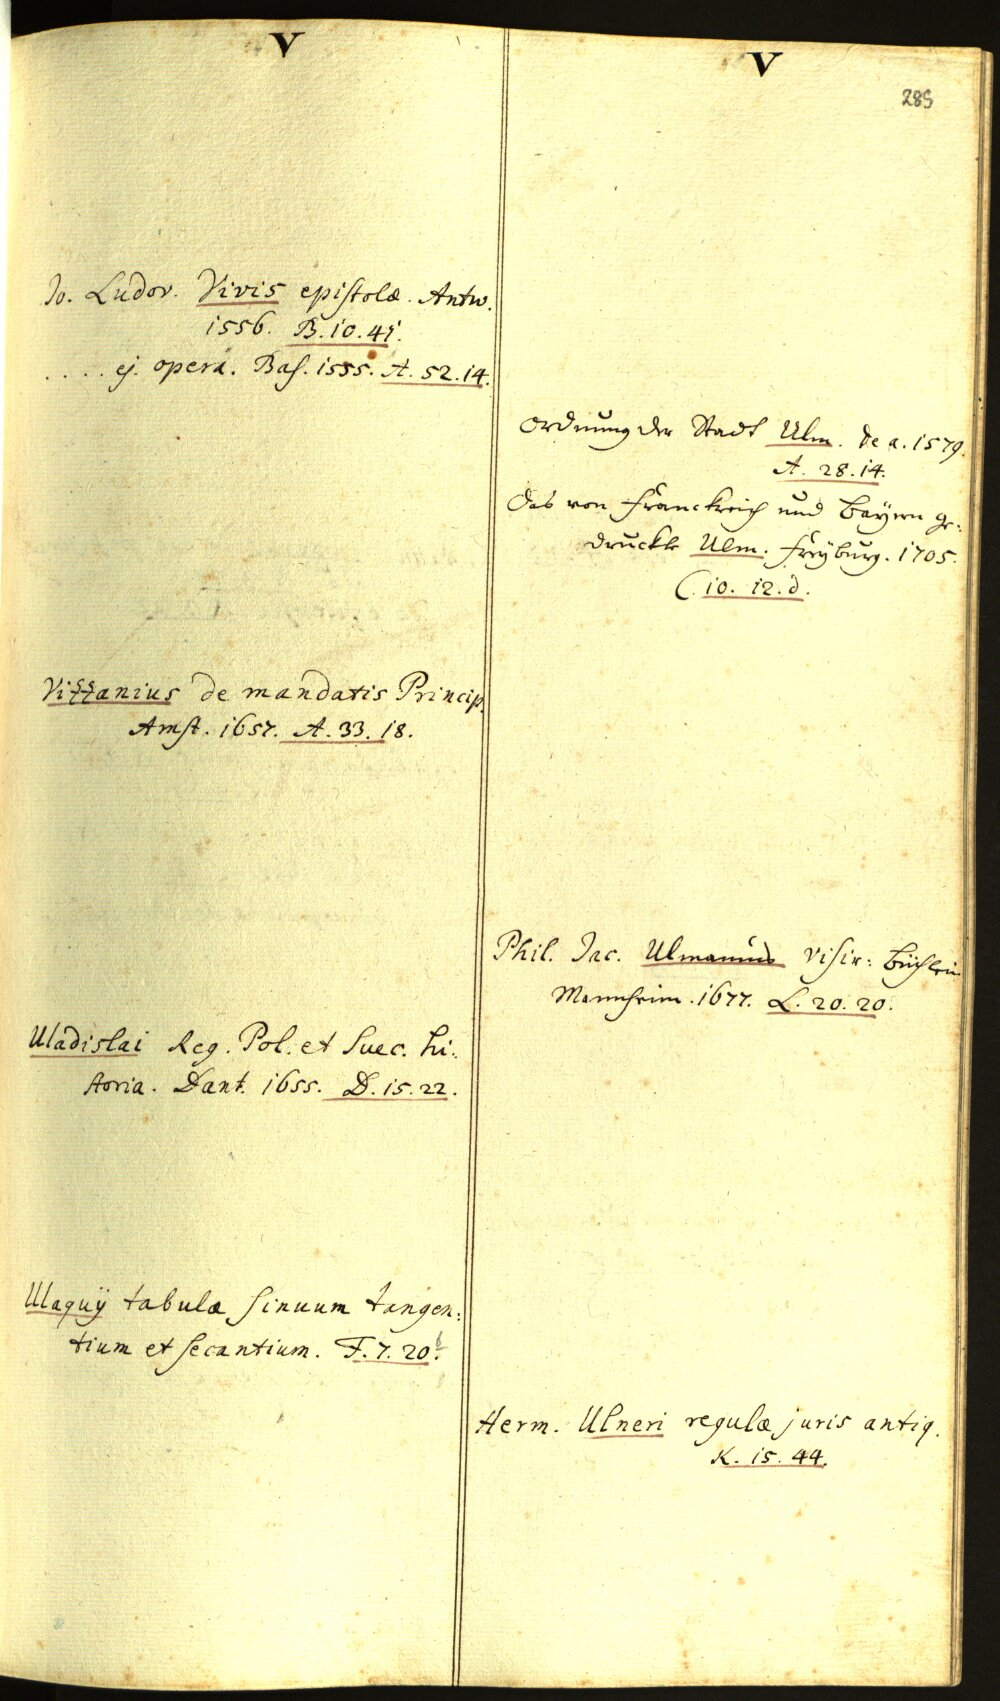 V
Jo. Ludov. Vivis epistolæ. Antw.
1556. B. 10. 41.
. . . . ej. opera. Bas. 1555. A. 52. 14.
Vizzanius de mandatis Princip.
Amst. 1657. A. 33. 18.
Uladislai Reg. Pol. et Suec. hi:
storia. Dant. 1655. D. 15. 22.
Ulaquij tabulæ sinuum tangen:
tium et secantium. F. 7. 20.
V
285
Ordnung der Stadt Ulm. de a. 1579.
A. 28. 14.
Das von Franckreich und Bayern ge:
druckte Ulm. Freyburg. 1705.
C. 10. 12. d.
Phil. Jac. Ulmanus Visir: Büchlein
Mannheim. 1677. L. 20. 20.
Herm. Ulneri regulæ juris antiq.
K. 15. 44.